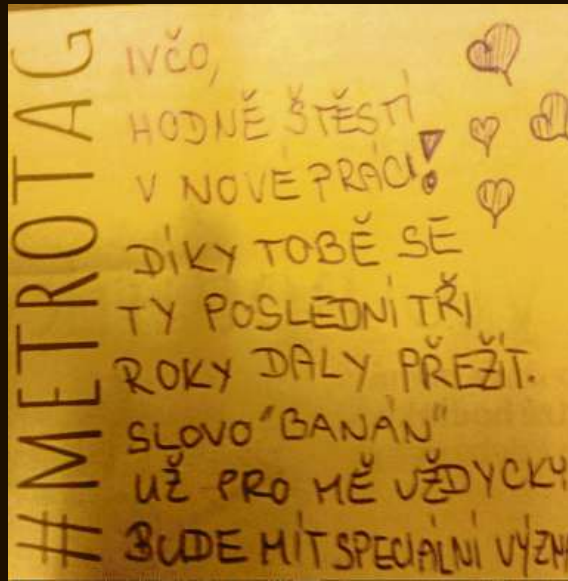 #METROTAG
IVČO,
HODNĚ ŠTĚSTÍ
V NOVÉ PRÁCI!
DÍKY TOBĚ SE
TY POSLEDNÍ TŘI
ROKY DALY PŘEŽÍT.
SLOVO "BANÁN"
UŽ PRO MĚ VŽDYCKY
BUDE MÍT SPECIÁLNÍ